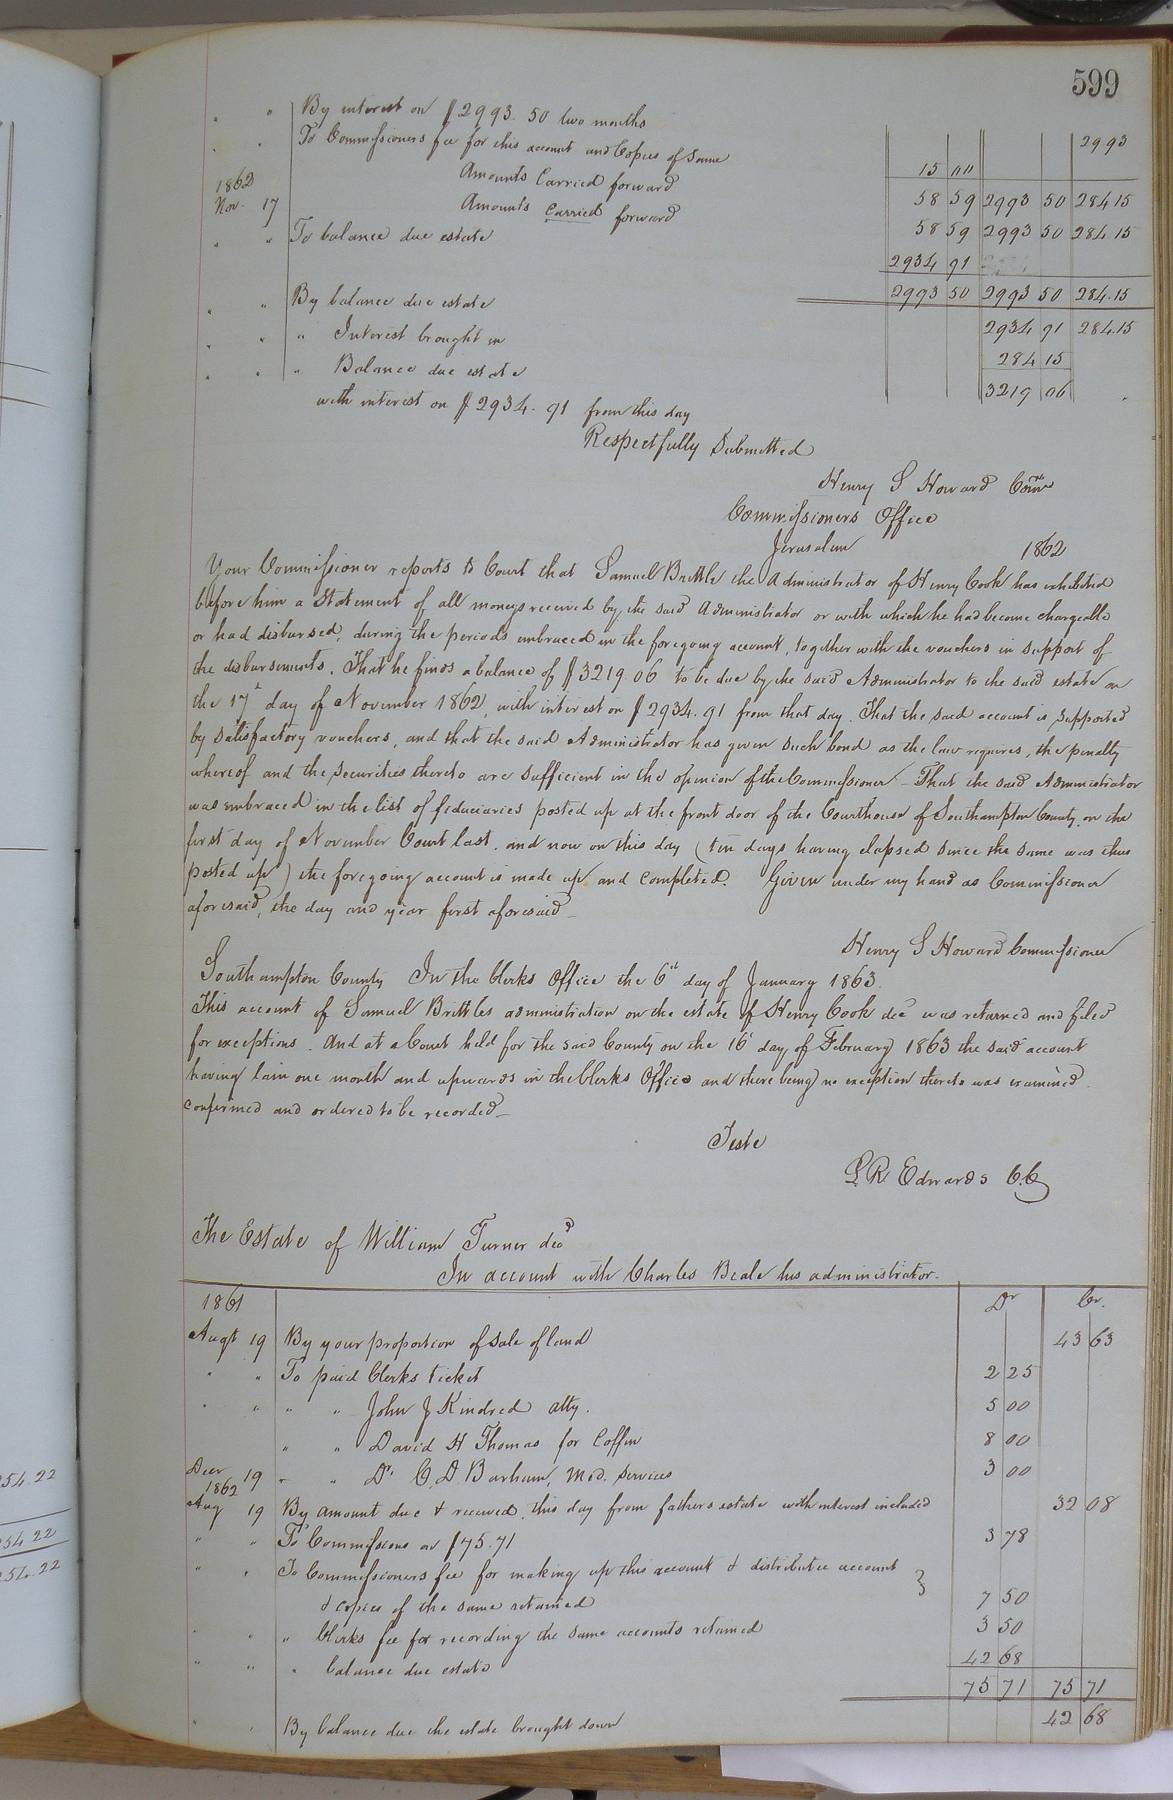 599
" " By interest on $2993.50 two months 2993
" " To Commissioners fee for this account and Copies of same 15 00
Amounts Carried forward 58 59 2993 50 284.15
1862
Nov. 17 Amounts Carried forward 58 59 2993 50 284.15
" " To balance due estate 2934 91
2993 50 2993 50 284.15
" " By balance due estate 2934 91 284.15
" " " Interest brought in 284 15
" " " Balance due estate 3219 06
with interest on $2934.91 from this day
Respectfully Submitted
Henry S Howard Comr
Commissioners Office
Jerusalem 1862
Your Commissioner reports to Court that Samuel Brittle the Administrator of Henry Cook has exhibited
before him a Statement of all moneys received by the said Administrator or with which he had become chargeable
or had disbursed, during the periods embraced in the foregoing account, together with the vouchers in support of
the disbursements. That he finds a balance of $3219.06 to be due by the said Administrator to the said estate on
the 17th day of November 1862, with interest on $2934.91 from that day. That the said account is supported
by satisfactory vouchers, and that the said Administrator has given such bond as the law requires, the penalty
whereof and the securities thereto are sufficient in the opinion of the Commissioner – That the said Administrator
was embraced in the list of fiduciaries posted up at the front door of the Courthouse of Southampton County on the
first day of November Court last. and now on this day (ten days having elapsed since the same was thus
posted up) the foregoing account is made up and completed. Given under my hand as Commissioner
aforesaid, the day and year first aforesaid –
Henry S Howard Commissioner
Southampton County In the Clerks Office the 6th day of January 1863.
This account of Samuel Brittles administration on the estate of Henry Cook decd was returned and filed
for exceptions. And at a Court held for the said County on the 16th day of February 1863 the said account
having lain one month and upwards in the Clerks Office and there being no exception thereto was examined.
confirmed and ordered to be recorded –
Teste
L R Edwards C.C
The Estate of William Turner decd
In account with Charles Beale his administrator.
1861 Dr Cr.
Augt 19 By your proportion of sale of land 43 63
" " To paid Clerks ticket 2 25
" " " " John J Kindred atty. 5 00
" " David H Thomas for Coffin 8 00
Decr 19 " " Dr. C. D Barham, Med. Services 3 00
1862
Aug 19 By amount due & received this day from fathers estate with interest included 32 08
" " To Commissions on $75.71 3 78
" " To Commissioners fee for making up this account & distributee account }
& copies of the same returned 7 50
" " " Clerks fee for recording the same accounts returned 3 50
" " " balance due estate 42 68
75 71 75 71
" " By balance due the estate brought down 42 68
54 22
54 22
54.22